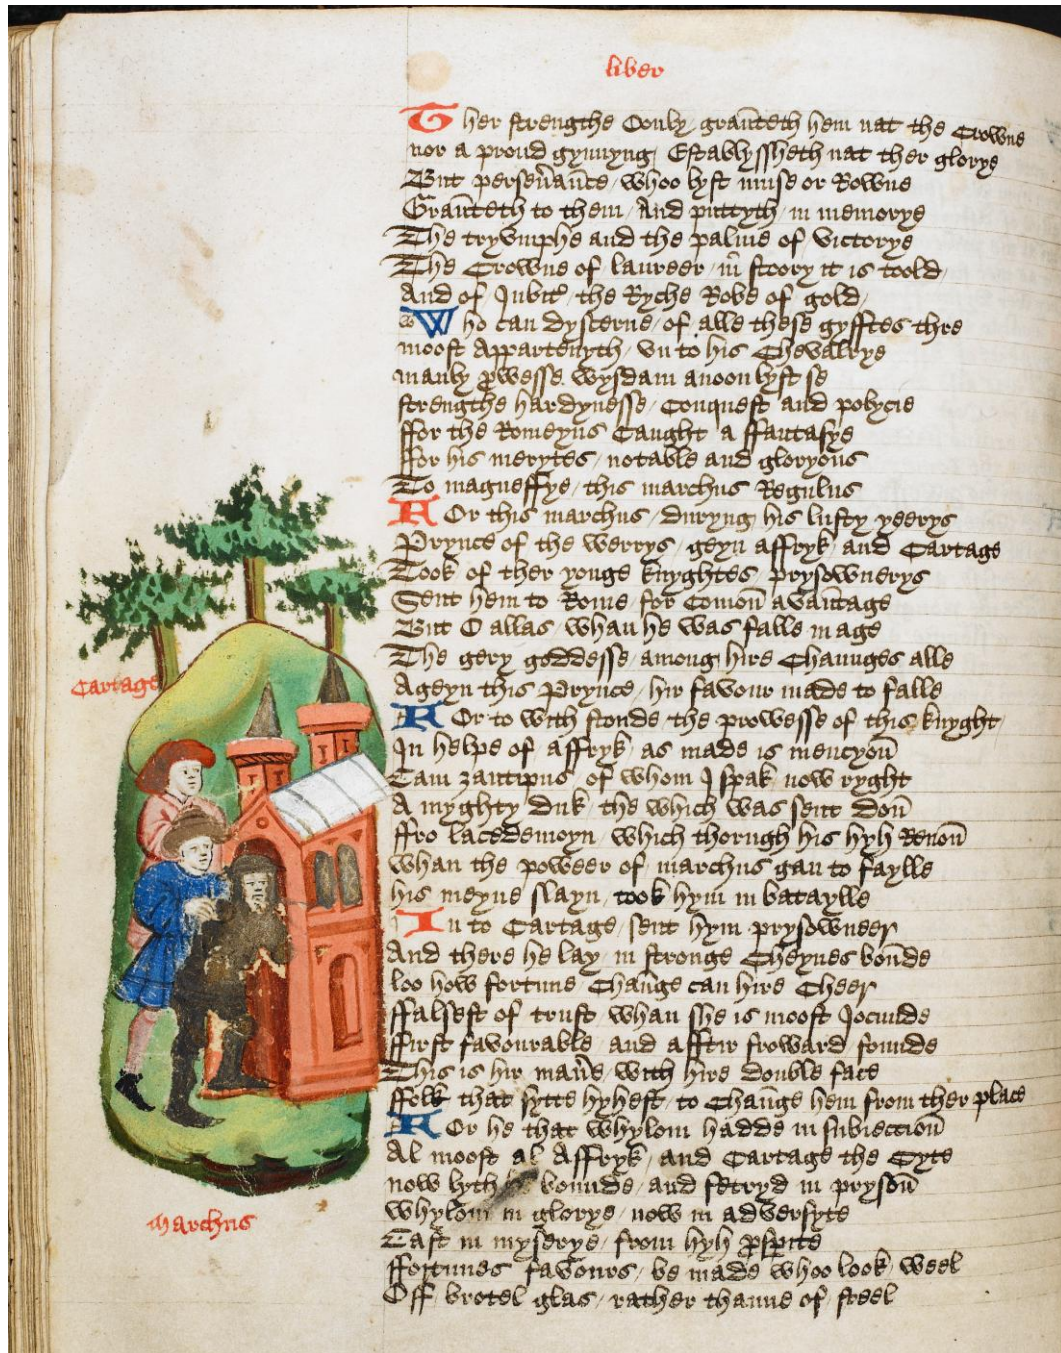 liber
Ther strengthe oonly / graūteth hem nat the Crowne
nor a proud gynnyng / Establyssheth nat ther glorye
But perseūaūce / whoo lyst muse or Rowne
Graūteth to them / And puttyth / in memorye
The tryumphe and the palme of / victorye
The Crowne of laureer / in stoory it is toold /
And of Iubit / the Ryche Robe of gold /
Who can dyscerne / of alle these gyfftes thre
moost Appartenyth / vn to his Chevalrye
manly prowesse wysdam anoon lyst se
strengthe hardynesse / Conquest and polycie
ffor the Romeyns Caught a ffantasye
ffor his merytes / notable and gloryous
To magneffye / this marchus Regulus
For this marchus / duryng his lusty yeerys
Prynce of the werrys / geyn affryk / and Cartage
Took of ther yonge knyghtes / prysownerys
Sent hem to Rome / for Comoū avaūtage
But O allas / whan he was falle in age
The gery goddesse / among hire Chaunges alle
Ageyn this Prynce / hir favour made to falle
Cartage
For to with stonde / the prowesse of this knyght /
In helpe of affryk / as made is mencyoū
Cam zantipus / of whom I spak / now ryght
A myghty duk / the which was sent doū
ffro lacedemoyn / which thorugh his hyh Renoū
whan the poweer of / marchus gan to faylle
his meyne slayn / took hym in bataylle
In to Cartage / sent hym prysoweer
And there he lay / in stronge Cheynes boūde
loo how fortune / Chaūge can hire Cheer
ffalsest of trust / whan she is moost Iocunde
ffirst favourable / and afftir froward founde
This is hir maūe / with hire double face
ffolk that sytte hyhest / to Chaūge hem from ther place
For he that whylom hadde in subieccioū
Al moost al Affryk / and Cartage the Cyte
now lyth bounde / and fetryd in prysoū
whylom in glorye / now in adversyte
Cast in myserye / from hyh prosperite
ffortunes favours / be made whoo look / weel
Off brotel glas / rather thanne of / steel
marchus